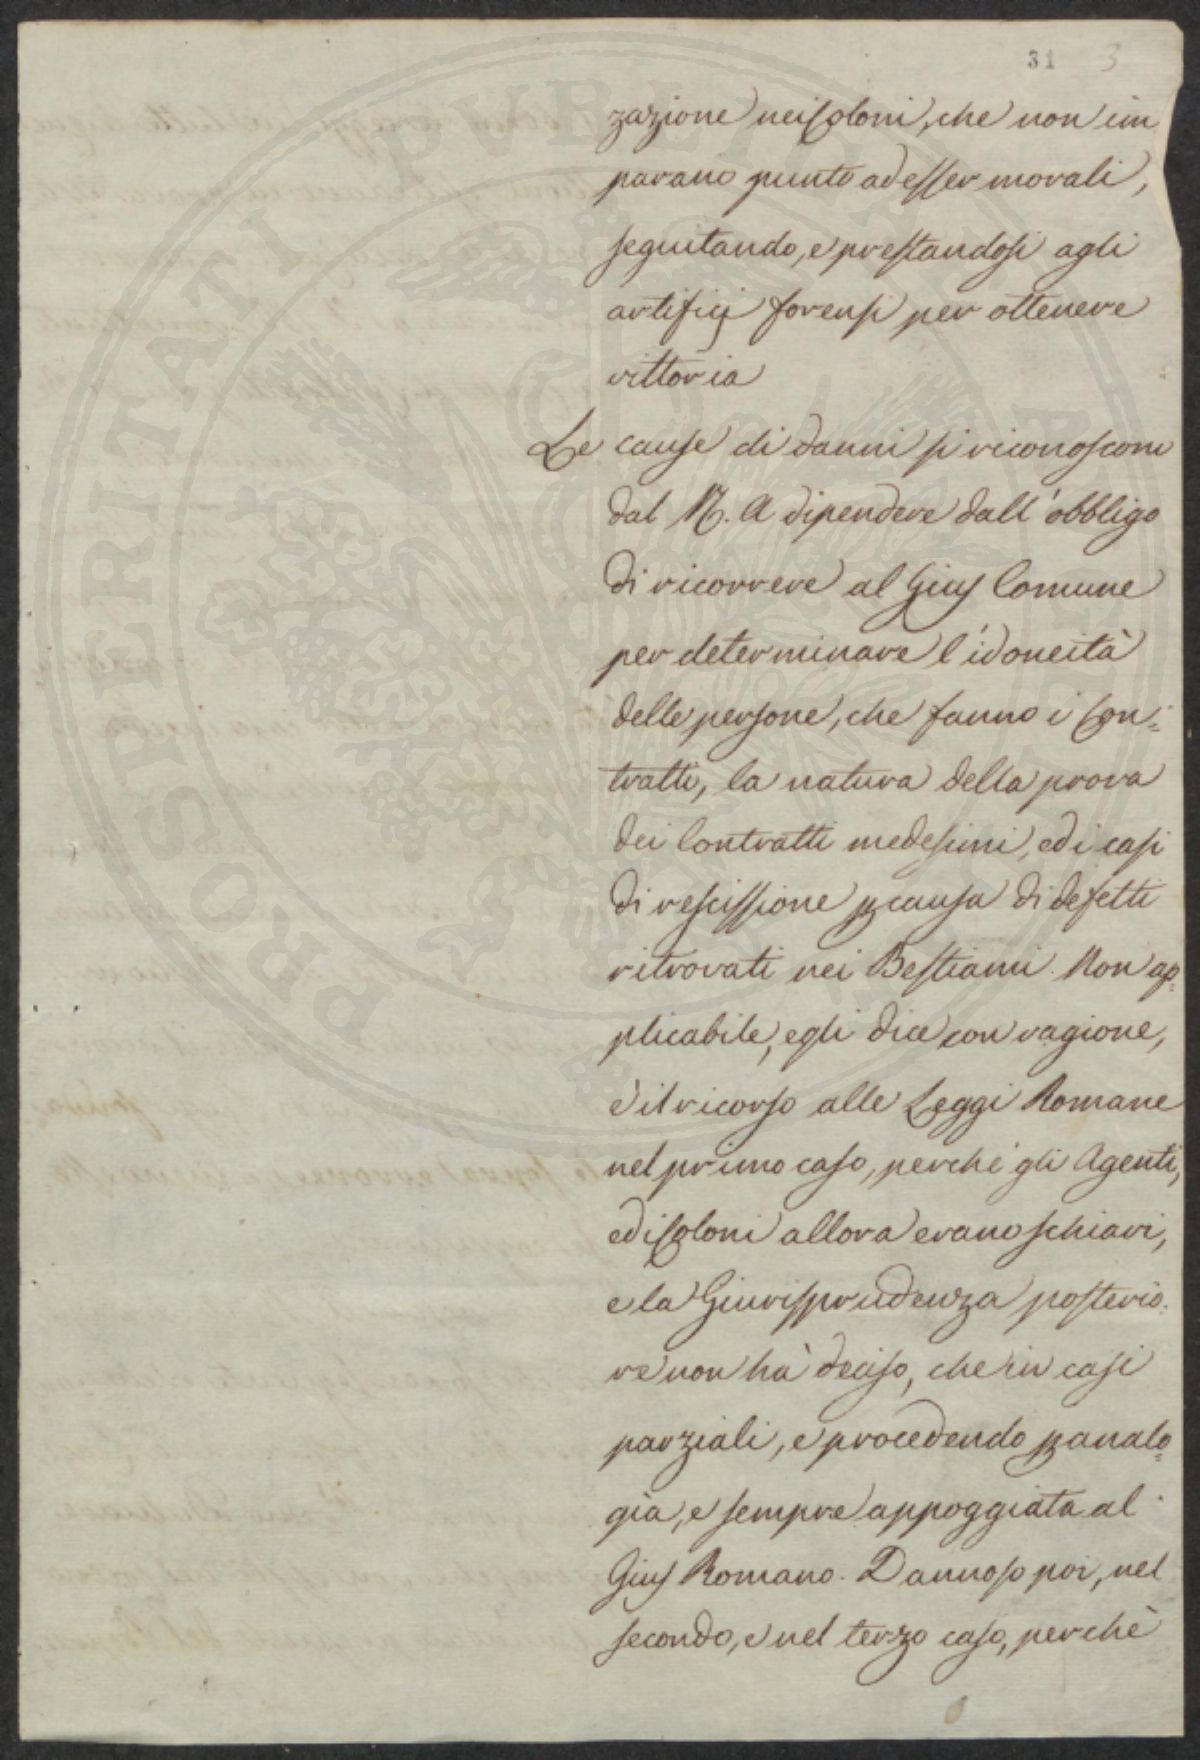 31 3
zazione nei Coloni, che non im
parano punto ad esser morali,
seguitando, e prestandosi agli
artificj forensi per ottenere
vittoria
Le cause di danni si riconoscono
dal N. A dipendere dall'obbligo
di ricorrere al Gius Comune
per determinare l'idoneità
delle persone, che fanno i Con=
tratti, la natura della prova
dei Contratti medesimi, ed i casi
di rescissione p causa di difetti
ritrovati nei Bestiami. Non ap=
plicabile, egli dice con ragione,
è il ricorso alle Leggi Romane
nel primo caso, perchè gli Agenti,
ed i Coloni allora erano schiavi,
e la Giurisprudenza posterio=
re non hà deciso, che in casi
parziali, e procedendo p analo=
gia, e sempre appoggiata al
Gius Romano. Dannoso poi, nel
secondo, e nel terzo caso, perchè
PROSPERITATI PVBLICAE